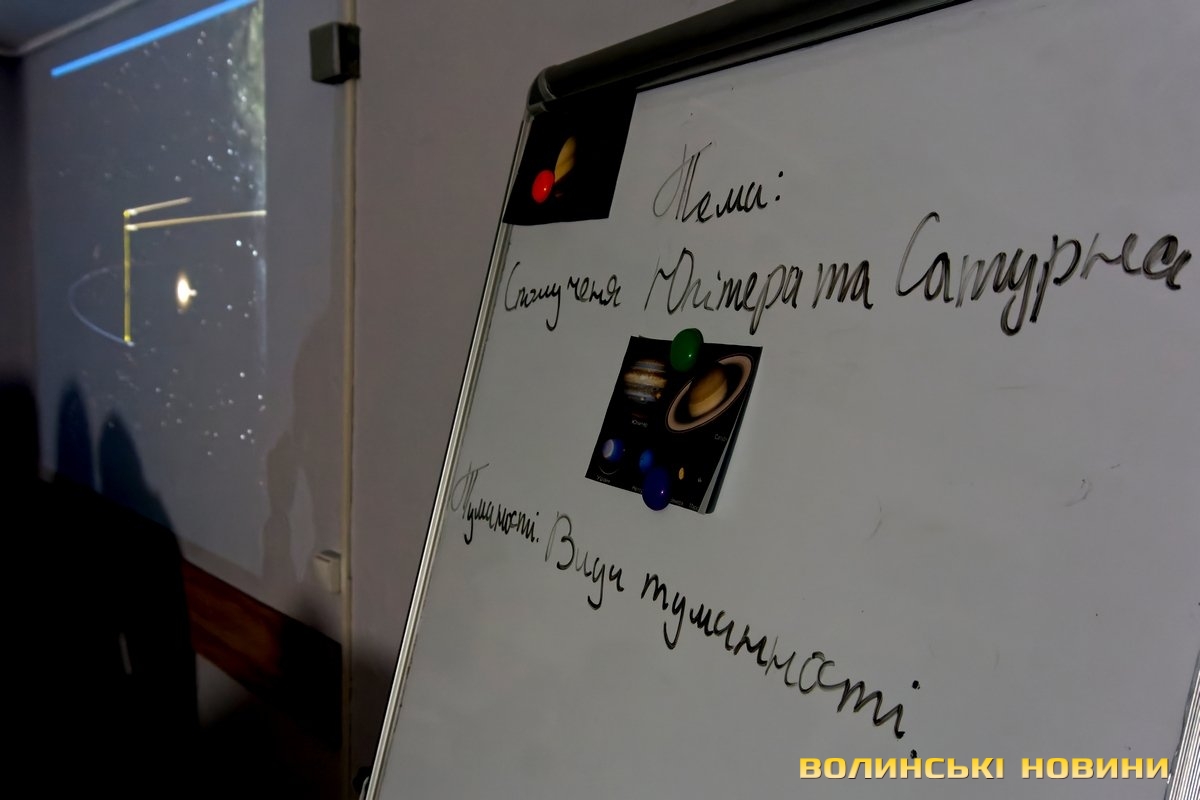 Тема:
Сполученя Юпітера та Сатурна
Туманості. Види туманності.
ВОЛИНСЬКІ НОВИНИ